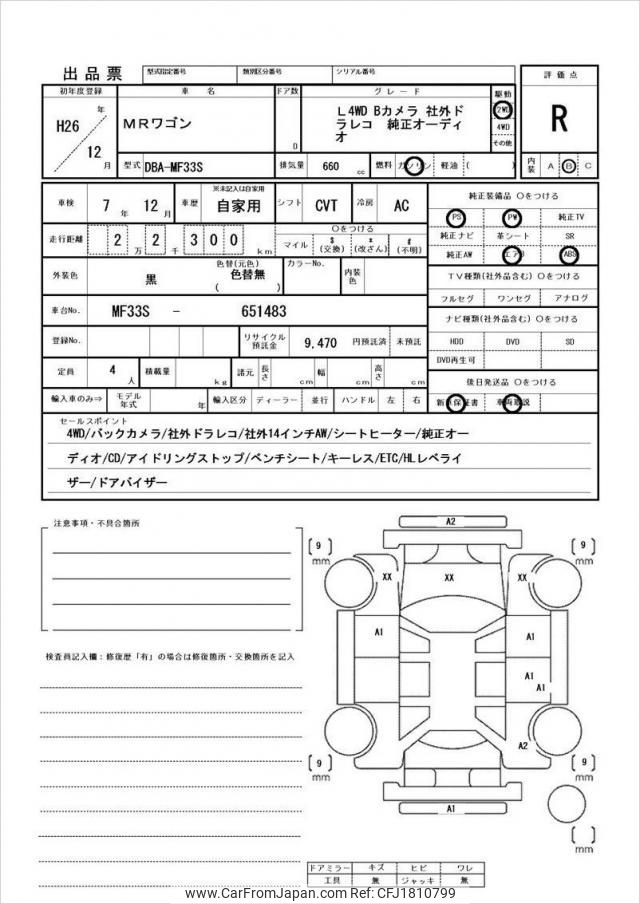 出品票
型式指定番号 類別区分番号 シリアル番号
評価点
R
初年度登録 車名 ドア数 グレード 駆動
H26 年 12 月
MRワゴン
D
L 4WD Bカメラ 社外ド
ラレコ 純正オーディ
オ
2WD
4WD
その他
型式 DBA-MF33S 排気量 660 cc 燃料 ガソリン 軽油 ( )
内装 A B C
車検 7年 12月 車歴 ※未記入は自家用 自家用 シフト CVT 冷房 AC
走行距離 2万 2千 300 km
〇をつける
マイル $(交換) *(改ざん) #(不明)
外装色 黒 色替(元色) 色替無 ( )
カラーNo. 内装色
車台No. MF33S - 651483
登録No. リサイクル預託金 9,470 円預託済 未預託
定員 4人 積載量 kg 諸元 長さ cm 幅 cm 高さ cm
輸入車のみ⇒ モデル年式 年 輸入区分 ディーラー 並行 ハンドル 左 右
純正装備品 〇をつける
PS PW 純正TV
純正ナビ 革シート SR
純正AW エアB ABS
TV種類(社外品含む) 〇をつける
フルセグ ワンセグ アナログ
ナビ種類(社外品含む) 〇をつける
HDD DVD SD
DVD再生可
後日発送品 〇をつける
新車保証書 車両取説
セールスポイント
4WD/バックカメラ/社外ドラレコ/社外14インチAW/シートヒーター/純正オー
ディオ/CD/アイドリングストップ/ベンチシート/キーレス/ETC/HLレベライ
ザー/ドアバイザー
注意事項・不具合箇所
検査員記入欄：修復歴「有」の場合は修復箇所・交換箇所を記入
A2
9 mm
9 mm
XX
XX
XX
A1
A1
A1
A1
A2
9 mm
9 mm
A1
mm
ドアミラー キズ ヒビ ワレ
工具 無 ジャッキ 無
www.CarFromJapan.com Ref: CFJ1810799